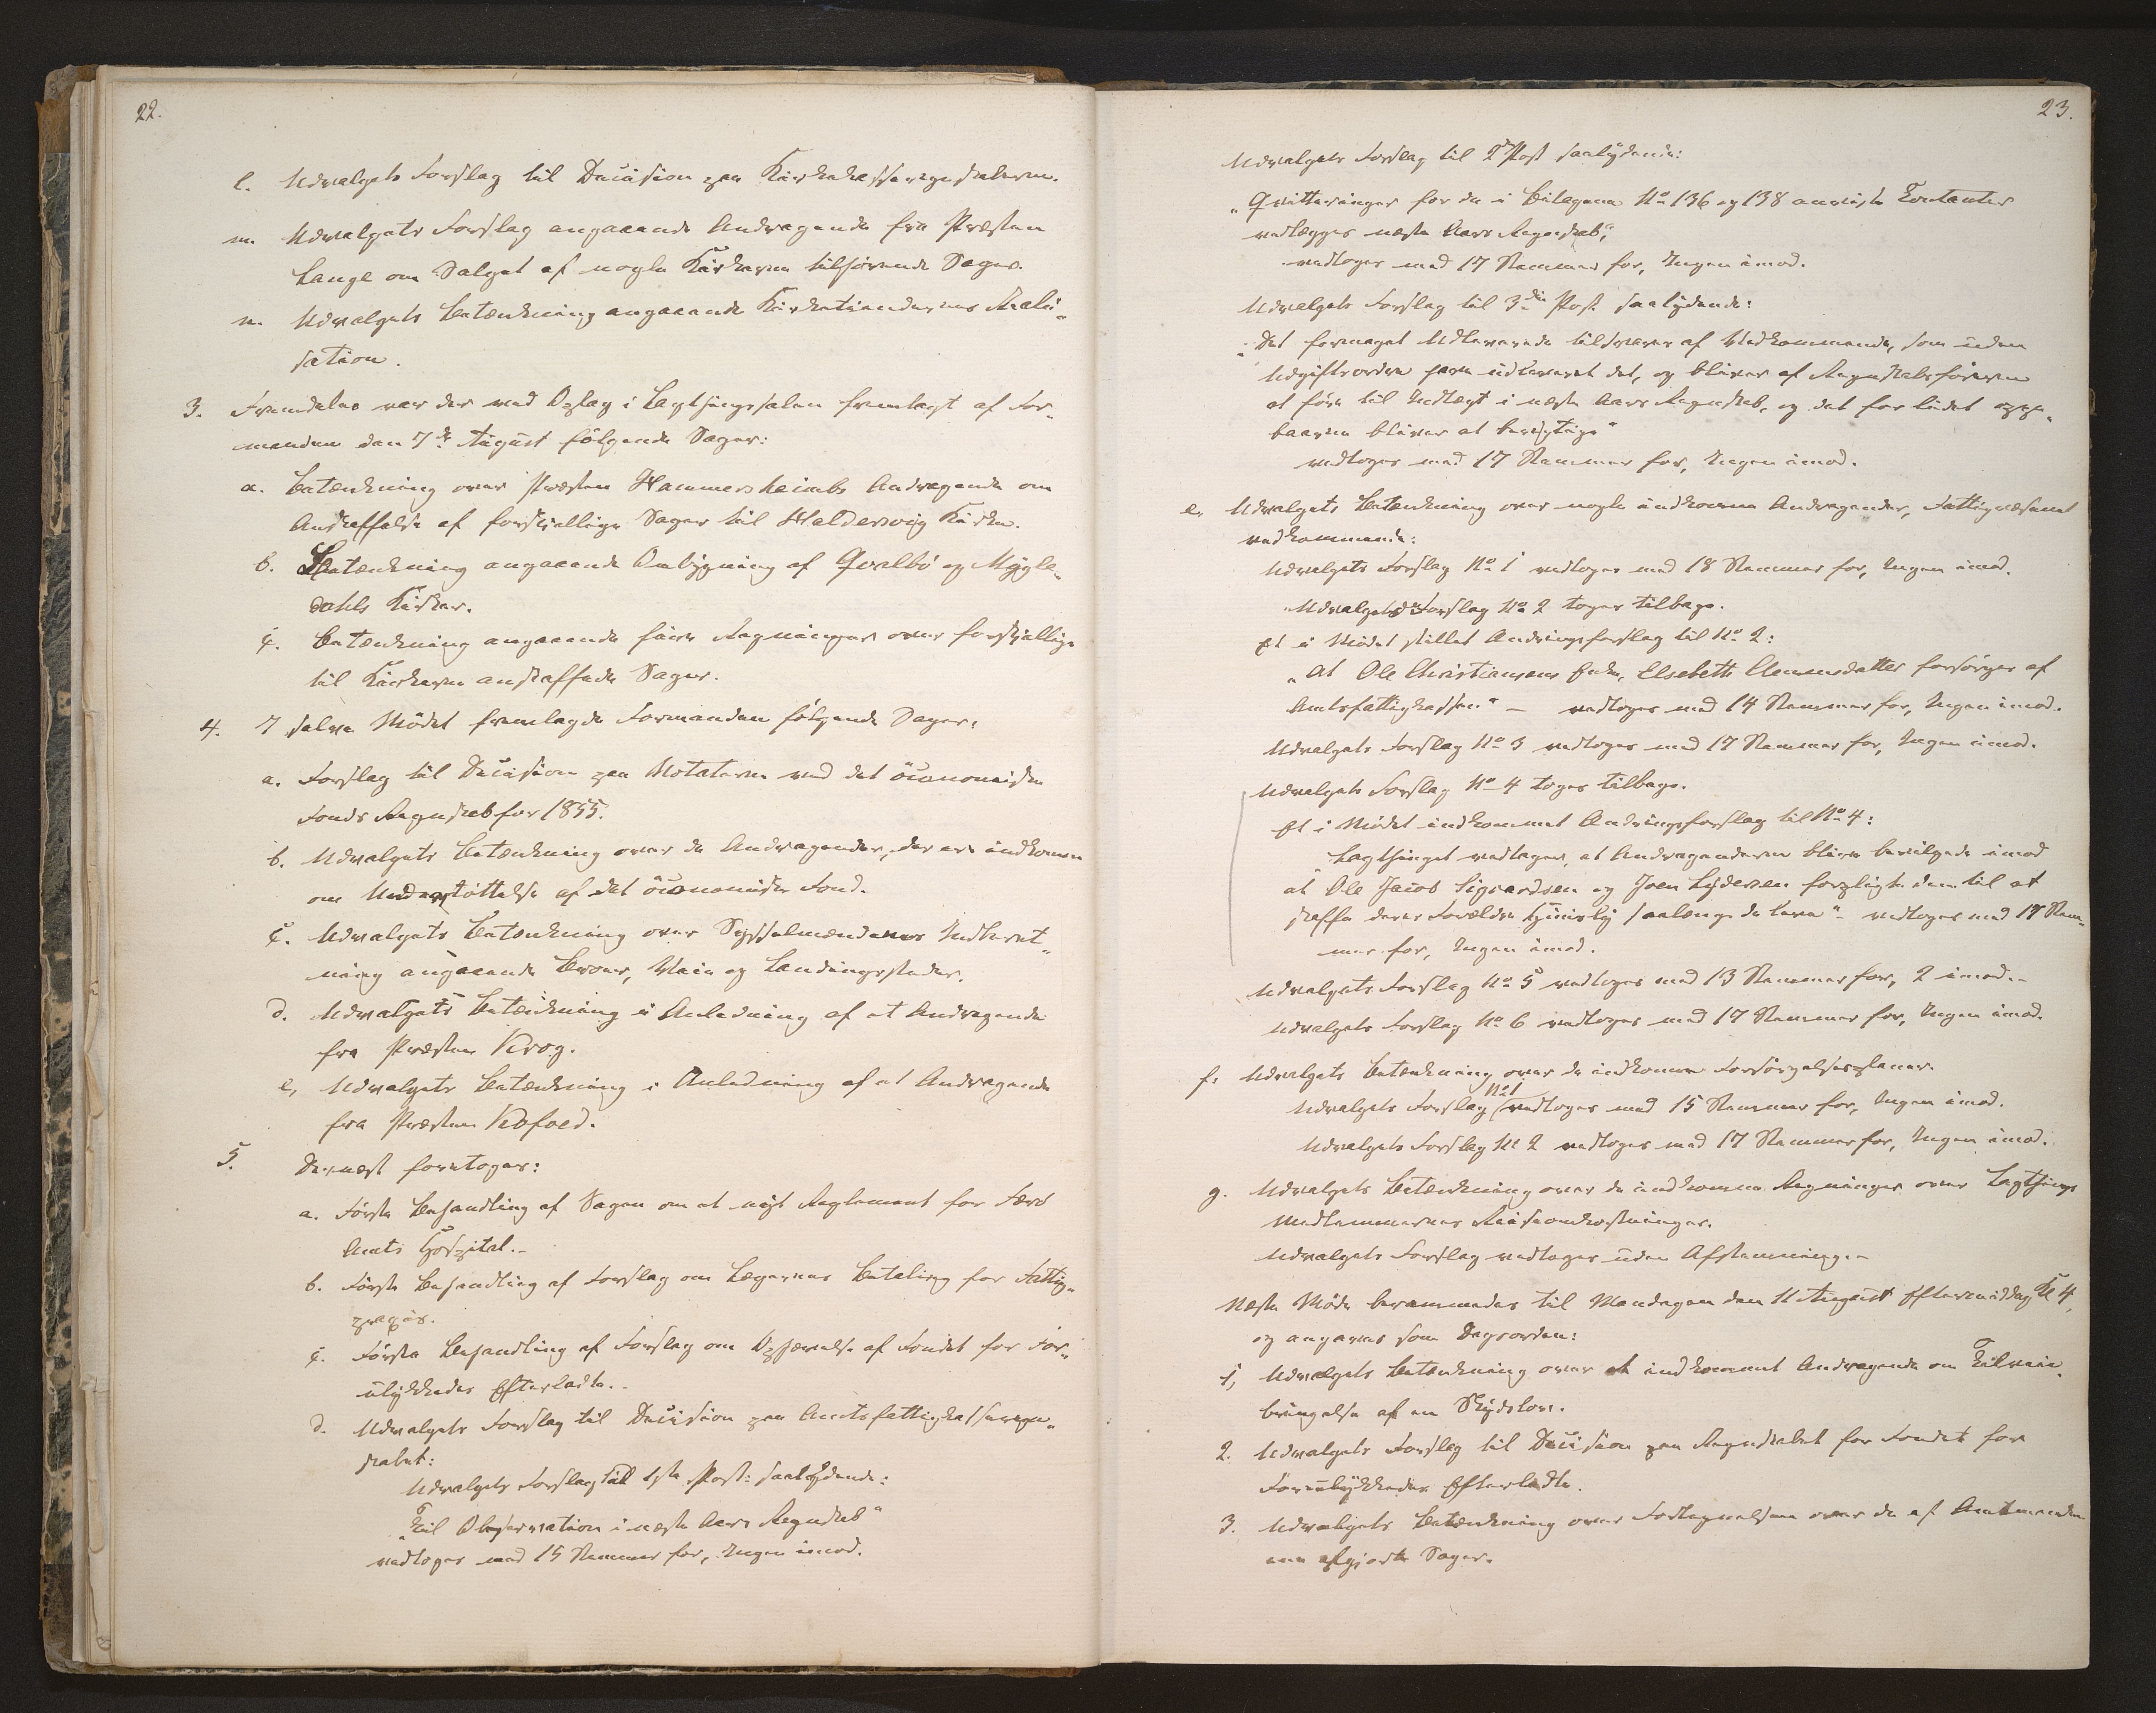 22.
l. Udvalgets Forslag til Decision paa Kirkekasseregnskaberne.
m. Udvalgets Forslag angaaende Andragende fra Præsten
Lange om Salget af nogle Kirkerne tilhørende Sager.
n. Udvalgets Betænkning angaaende Kirketiendernes Reali-
sation.
3. Fremdeles var der ved Opslag i Lagthingssalen fremlagt af For-
manden den 7de August følgende Sager:
a. Betænkning over Præsten Hammersheimbs Andragende om
Anskaffelse af forskjellige Sager til Haldersvig Kirke.
b. Betænkning angaaende Ombygning af Qvalbø og Mygle-
dahls Kirker.
c. Betænkning angaaende fire Regninger over forskjellige
til Kirkerne anskaffede Sager.
4. I selve Mødet fremlagde Formanden følgende Sager:
a. Forslag til Decision paa Notaterne ved det öconomiske
Fonds Regnskab for 1855.
b. Udvalgets Betænkning over de Andragender, der ere indkomne
om Understøttelse af det öconomiske Fond.
c. Udvalgets Betænkning over Sysselmændenes Indberet-
ning angaaende Broer, Veie og Landingssteder.
d. Udvalgets Betænkning i Anledning af et Andragende
fra Præsten Krog.
e, Udvalgets Betænkning i Anledning af et Andragende
fra Præsten Kofoed.
5. Dernæst foretoges:
a. Første Behandling af Sagen om et nyt Reglement for Færö
Amts Hospital.-
b. Første Behandling af Forslag om Lægernes Betaling for Fattig-
praxis.
c. Første Behandling af Forslag om Ophævelse af Fondet for For-
ulykkedes Efterladte.-
d. Udvalgets Forslag til Decision paa Amtsfattigkasseregn-
skabet:
Udvalgets Forslag til 1ste Post: saalydende:
"Til Observation i næste Aars Regnskab"
vedtoges med 15 Stemmer for, Ingen imod.
23.
Udvalgets Forslag til 2den Post saalydende:
"Qvitteringer for de i Bilagene No 136 og 138 anviste Contanter
vedlægges næste Aars Regnskab",
vedtoges med 17 Stemmer for, Ingen imod.
Udvalgets Forslag til 3die Post saalydende:
"Det formeget Udleverede tilsvares af Vedkommende, som uden
Udgiftsordre have udleveret det, og bliver af Regnskabsføreren
at føre til Indtægt i næste Aars Regnskab, og det for lidet oppe-
baarne bliver at berigtige"
vedtoges med 17 Stemmer for, Ingen imod.
e, Udvalgets Betænkning over nogle indkomne Andragender, Fattigvæsenet
vedkommende:
Udvalgets Forslag No 1 vedtoges med 18 Stemmer for, Ingen imod.
Udvalgets Forslag No 2 toges tilbage.
Et i Mødet stillet Ændringsforslag til No 2:
"At Ole Christiansens Enke, Elsebeth Clemensdatter forsørges af
Amtsfattigkassen" - vedtoges med 14 Stemmer for, Ingen imod.
Udvalgets Forslag No 3 vedtoges med 17 Stemmer for, Ingen imod.
Udvalgets Forslag No 4 toges tilbage.
Et i Mødet indkommet Ændringsforslag til No 4:
"Lagthinget vedtager, at Andragenderne blive bevilgede imod
at Ole Jacob Sigvardsen og Joen Lydersen forpligte dem til at
skaffe deres Forældre Huusly saalænge de leve" - vedtoges med 17 Stem-
mer for, Ingen imod.
Udvalgets Forslag No 5 vedtoges med 13 Stemmer for, 2 imod.-
Udvalgets Forslag No 6 vedtoges med 17 Stemmer for, Ingen imod.
f. Udvalgets Betænkning over de indkomne Forsørgelsesplaner.
Udvalgets Forslag No 1 vedtoges med 15 Stemmer for, Ingen imod.
Udvalgets Forslag No 2 vedtoges med 17 Stemmer for, Ingen imod.
g. Udvalgets Betænkning over de indkomne Regninger over Lagthings
Medlemmernes Reiseomkostninger.
Udvalgets Forslag vedtoges uden Afstemning.-
Næste Møde berammedes til Mandagen den 11 August Eftermiddag Kl 4,
og angaves som Dagsorden:
1, Udvalgets Betænkning over et indkommet Andragende om Tilveie-
bringelse af en Skydslov.
2. Udvalgets Forslag til Decision paa Regnskabet for Fondet for
Forulykkedes Efterladte.
3. Udvalgets Betænkning over Fortegnelsen over de af Amtmanden
ene afgjorte Sager.